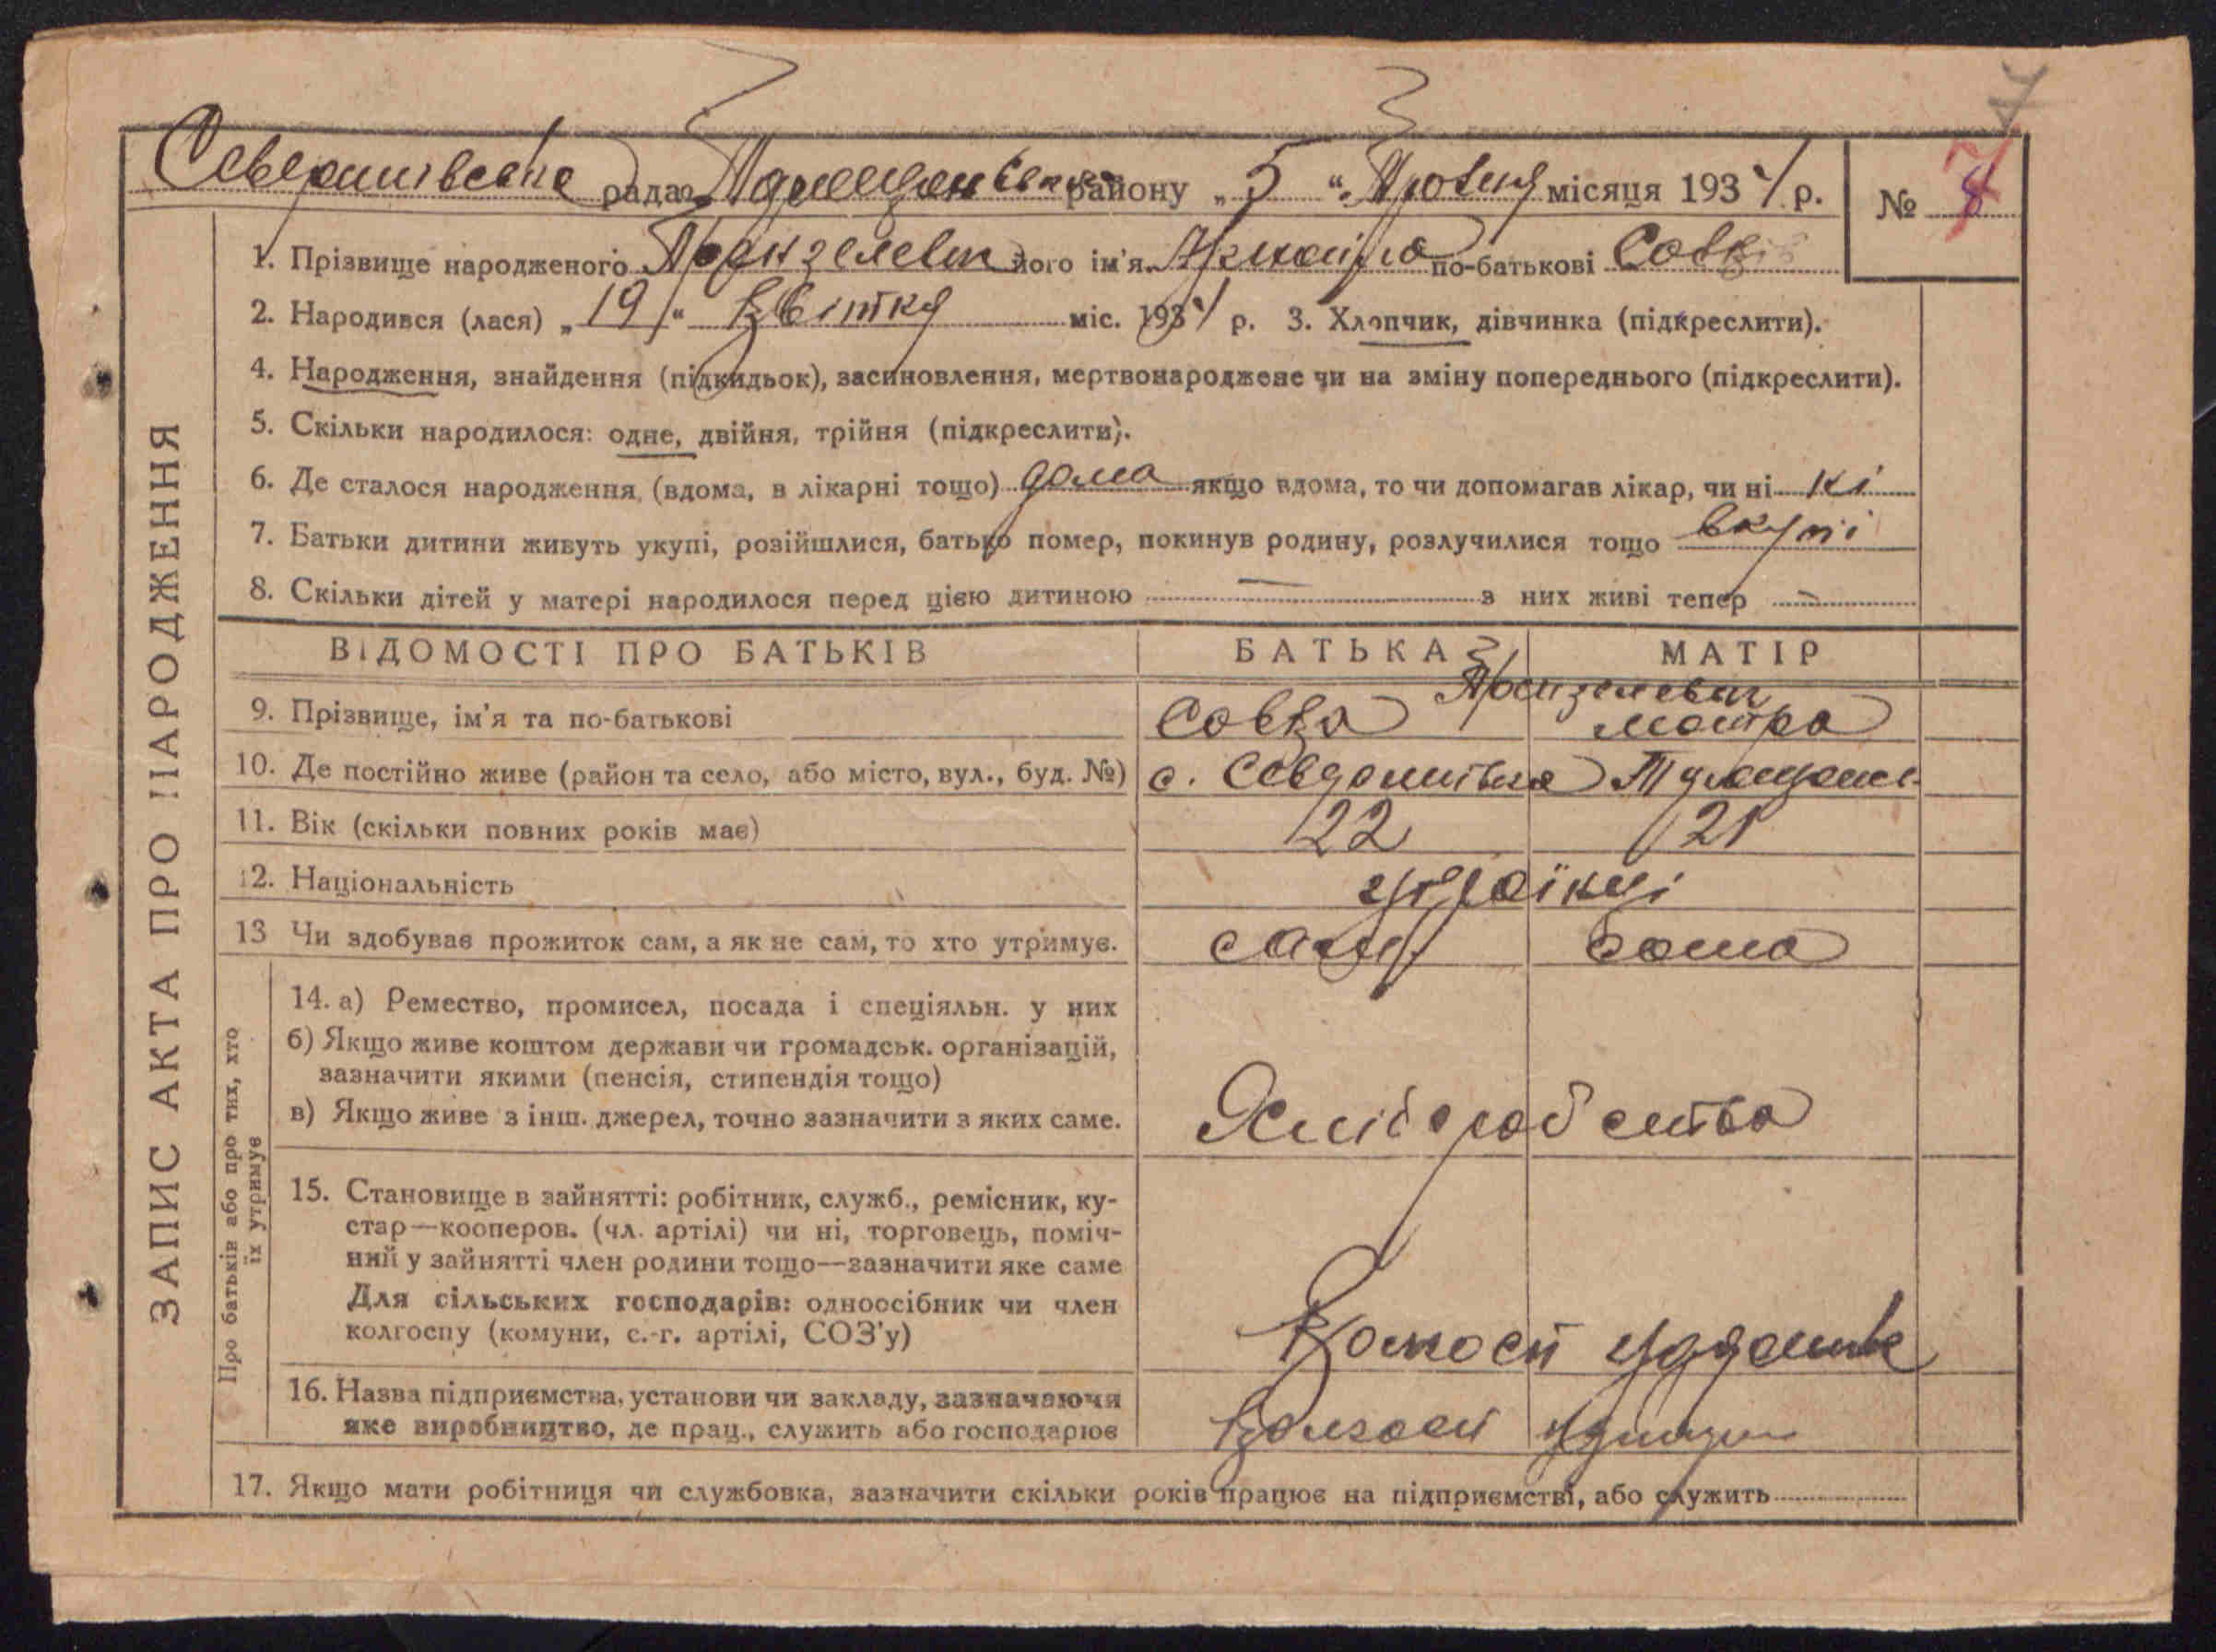 рада району „ 5 “ місяця 193 4 р. № 8
1. Прізвище народженого його ім'я по-батькові
2. Народився (лася) „ 19 “ Квітня міс. 1934 р. 3. Хлопчик, дівчинка (підкреслити).
4. Народження, знайдення (підкидьок), засиновлення, мертвонароджене чи на зміну попереднього (підкреслити).
5. Скільки народилося: одне, двійня, трійня (підкреслити).
6. Де сталося народження, (вдома, в лікарні тощо) дома якщо вдома, то чи допомагав лікар, чи ні ні
7. Батьки дитини живуть укупі, розійшлися, батько помер, покинув родину, розлучилися тощо вкупі
8. Скільки дітей у матері народилося перед цією дитиною — з них живі тепер —
ЗАПИС АКТА ПРО НАРОДЖЕННЯ
ВІДОМОСТІ ПРО БАТЬКІВ БАТЬКА МАТІР
9. Прізвище, ім'я та по-батькові Савка
10. Де постійно живе (район та село, або місто, вул., буд. №) с.
11. Вік (скільки повних років має) 22 21
12. Національність українці
13 Чи здобуває прожиток сам, а як не сам, то хто утримує. сам сама
Про батьків або про тих, хто
їх утримує
14. а) Ремество, промисел, посада і спеціяльн. у них
б) Якщо живе коштом держави чи громадськ. організацій,
зазначити якими (пенсія, стипендія тощо)
в) Якщо живе з інш. джерел, точно зазначити з яких саме. Хліборобства
15. Становище в зайнятті: робітник, служб., ремісник, ку-
стар—кооперов. (чл. артілі) чи ні, торговець, поміч-
ний у зайнятті член родини тощо—зазначити яке саме
Для сільських господарів: одноосібник чи член
колгоспу (комуни, с.-г. артілі, СОЗ'у)
16. Назва підприємства, установи чи закладу, зазначаючи
яке виробництво, де прац., служить або господарює колгосп
17. Якщо мати робітниця чи службовка, зазначити скільки років працює на підприємстві, або служить